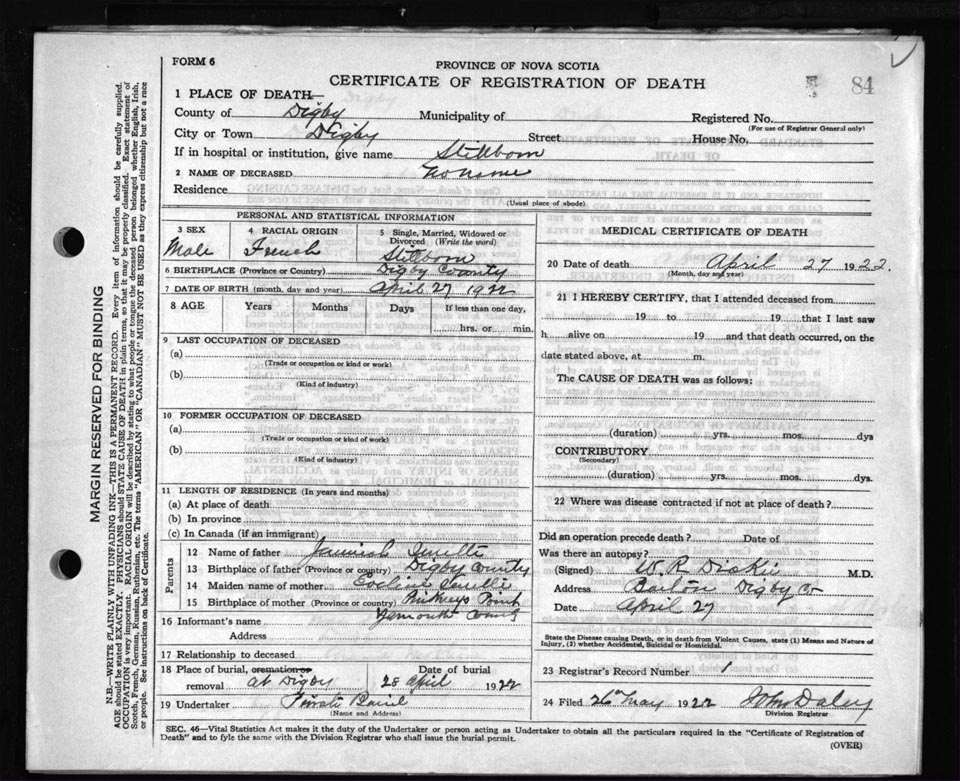 FORM 6
PROVINCE OF NOVA SCOTIA
CERTIFICATE OF REGISTRATION OF DEATH
84
1 PLACE OF DEATH—
County of Digby Municipality of Registered No.
(For use of Registrar General only)
City or Town Digby Street House No.
If in hospital or institution, give name Stillborn
2 NAME OF DECEASED No name
Residence
(Usual place of abode)
PERSONAL AND STATISTICAL INFORMATION
3 SEX 4 RACIAL ORIGIN 5 Single, Married, Widowed or Divorced (Write the word)
Male French Stillborn
6 BIRTHPLACE (Province or Country) Digby County
7 DATE OF BIRTH (month, day and year) April 27 1922
8 AGE Years Months Days If less than one day,
hrs. or min.
9 LAST OCCUPATION OF DECEASED
(a)
(Trade or occupation or kind or work)
(b)
(Kind of industry)
10 FORMER OCCUPATION OF DECEASED
(a)
(Trade or occupation or kind of work)
(b)
(Kind of industry)
11 LENGTH OF RESIDENCE (In years and months)
(a) At place of death
(b) In province
(c) In Canada (if an immigrant)
Parents
12 Name of father
13 Birthplace of father (Province or country) Digby County
14 Maiden name of mother
15 Birthplace of mother (Province or country) Point
Yarmouth County
16 Informant's name
Address
17 Relationship to deceased
18 Place of burial, cremation or Date of burial
removal at Digby 28 April 1922
19 Undertaker Private Burial
(Name and Address)
MEDICAL CERTIFICATE OF DEATH
20 Date of death April 27 1922.
(Month, day and year)
21 I HEREBY CERTIFY, that I attended deceased from
19 to 19 that I last saw
h alive on 19 and that death occurred, on the
date stated above, at m.
The CAUSE OF DEATH was as follows:
(duration) yrs. mos. dys
CONTRIBUTORY
(Secondary)
(duration) yrs. mos. dys
22 Where was disease contracted if not at place of death?
Did an operation precede death? Date of
Was there an autopsy?
(Signed) W. R. M.D.
Address Barton Digby Co
Date April 27
State the Disease causing Death, or in death from Violent Causes, state (1) Means and Nature of
Injury, (2) whether Accidental, Suicidal or Homicidal.
23 Registrar's Record Number 1
24 Filed 26th May 1922 John Daley
Division Registrar
SEC. 46—Vital Statistics Act makes it the duty of the Undertaker or person acting as Undertaker to obtain all the particulars required in the "Certificate of Registration of
Death" and to fyle the same with the Division Registrar who shall issue the burial permit.
(OVER)
MARGIN RESERVED FOR BINDING
N.B.—WRITE PLAINLY WITH UNFADING INK—THIS IS A PERMANENT RECORD. Every item of information should be carefully supplied.
AGE should be stated EXACTLY. PHYSICIANS should STATE CAUSE OF DEATH in plain terms, so that it may be properly classified. Exact statement of
OCCUPATION is very important. RACIAL ORIGIN will be described by stating to what people or tongue the deceased person belonged whether English, Irish,
Scotch, French, German, Russian, Ruthenian, etc. The terms "AMERICAN" OR "CANADIAN" MUST NOT BE USED as they express citizenship but not a race
or people. See instructions on back of Certificate.